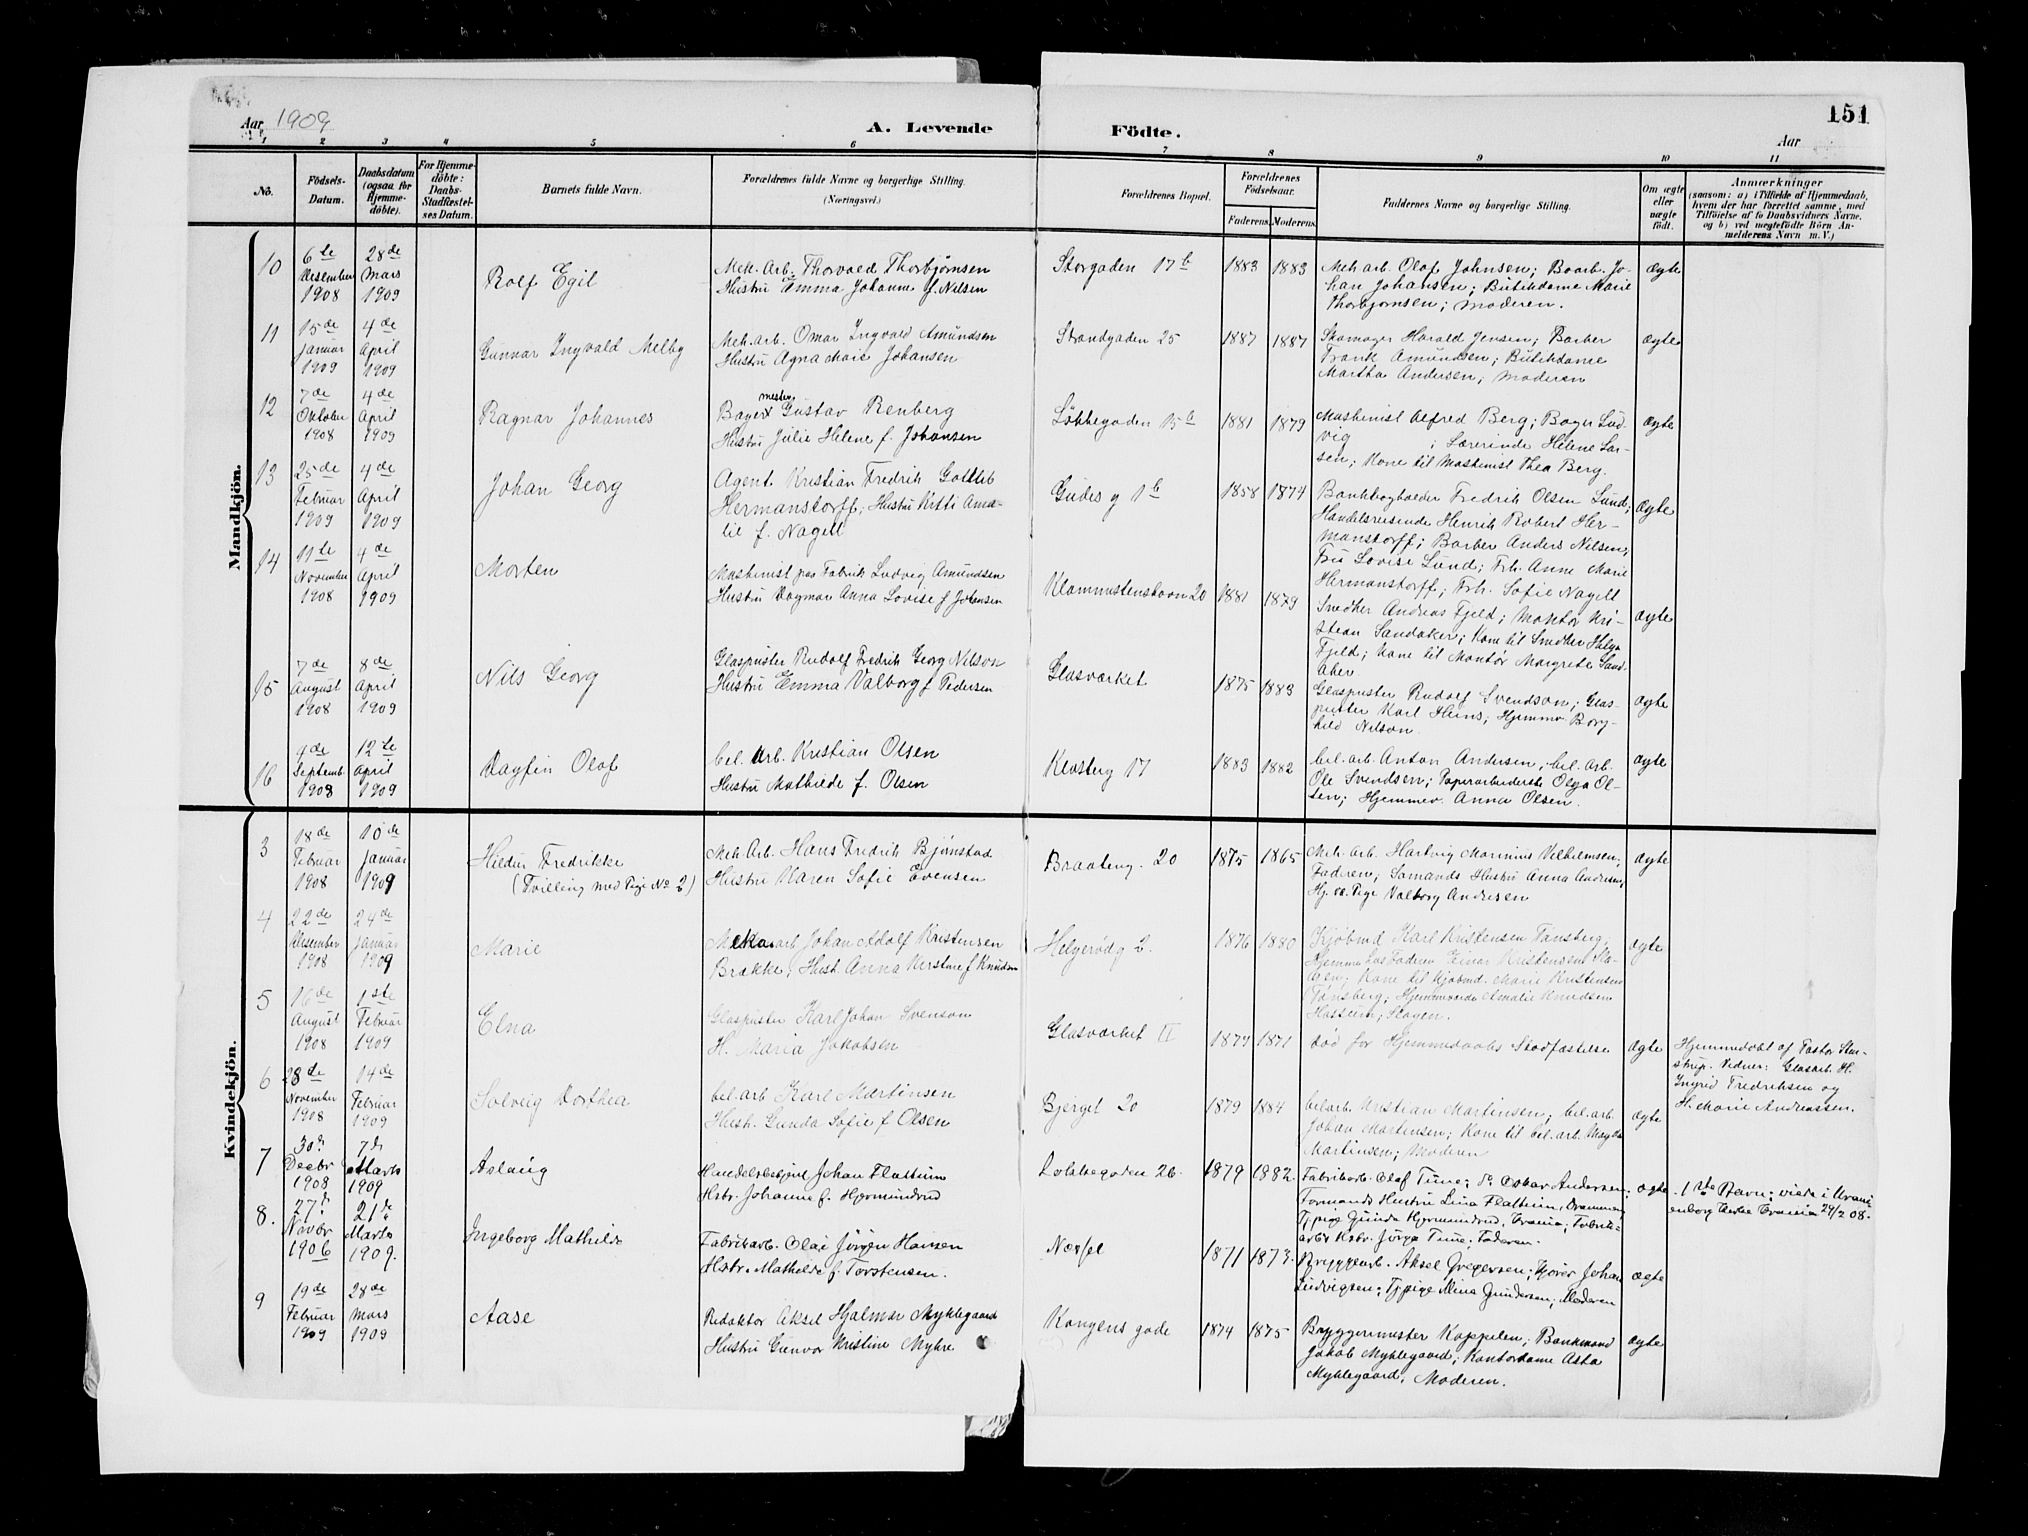 151
Aar 1909
A. Levende
Födte.
Aar
1 2 3 4 5 6 7 8 9 10 11
No.
Födsels-
Datum.
Daabsdatum
(ogsaa for
Hjemme-
döbte).
For Hjemme-
döbte:
Daabs-
Stadfæstel-
ses Datum.
Barnets fulde Navn.
Forældrenes fulde Navne og borgerlige Stilling.
(Næringsvei.)
Forældrenes Bopæl.
Forældrenes
Födselsaar.
Faderens. Moderens.
Faddernes Navne og borgerlige Stilling.
Om ægte
eller
uægte
födt.
Anmærkninger
(saasom: a) i Tilfælde af Hjemmedaab,
hvem der har forrettet samme, med
Tilföielse af to Daabsvidners Navne.
og b) ved uægtefödte Börn An-
melderens Navn m.V.)
Mandkjön.
10
6te
Desember
1908
28de
Mars
1909
Rolf Egil
Mek. Arb. Thorvald Thorbjørnsen
Hustru Emma Johanne f. Nilsen
Storgaden 17b
1883 1883
Mek arb. Olaf Johnsen; Baarb. Jo-
han Johansen; Butikdame Marie
Thorbjørnsen; Moderen.
ægte
11
15de
Januar
1909
4de
April
1909
Gunnar Ingvald Melby
Mek. arb. Omar Ingvald Amundsen
Hustru Agna Marie Johansen
Strandgaden 25
1887 1887
Skomager Harald Jensen; Barber
Frank Amundsen; Butikdame
Martha Andersen; Moderen
ægte
12
7de
Oktober
1908
4de
April
1909
Ragnar Johannes
Bagermester Gustav Renberg
Hustru Julie Helene f. Johansen
Løkkegaden 15b
1881 1879
Maskinist Alfred Berg; Bager Lud-
vig ; Lærerinde Helene Lar-
sen; Kone til Maskinist Thea Berg.
ægte
13
25de
Februar
1909
4de
April
1909
Johan Georg
Agent Kristian Fredrik Gottlib
Hermanstorff; Hustru Kitti Ama-
lie f. Nagell
Gudes g 1b
1858 1874
Bankbogholder Fredrik Olsen Lund;
Handelsreisende Henrik Robert Her-
manstorff; Barber Anders Nilsen;
Fru Lovise Lund; Frk. Anne Marie
Hermanstorff; Frk. Sofie Nagell
ægte
14
11te
November
1908
4de
April
1909
Morten
Maskinist paa Fabrik Ludvig Amundsen
Hustru Dagmar Anna Lovise f Johansen
1881 1879
Smedker Andreas Fjeld; Montør Kri-
stian Sandaker; Kone til Smedker Helga
Fjeld; Kone til Montør Margrete Sand-
aker
ægte
15
7de
August
1908
8de
April
1909
Nils Georg
Glaspuster Rudolf Fredrik Georg Nilson
Hustru Emma Valborg f Pedersen
Glasværket
1875 1883
Glaspuster Rudolf Svendson; Glas-
puster Karl Heins; Hjemmev. Borg-
hild Nilson
ægte
16
9de
Septemb.
1908
12te
April
1909
Dagfin Olaf
bel. Arb. Kristian Olsen
Hustru Mathilde f. Olsen
Klosterg 17
1883 1882
bel. arb. Anton Andersen, bel. arb.
Ole Svendsen; Papirarbeiderske Olga Ol-
sen; Hjemmev. Anna Olsen.
ægte
Kvindekjön.
3
18de
Februar
1908
10de
Januar
1909
Hildur Fredrikke
(Tvilling med Pige No 2)
Mek. Arb. Hans Fredrik Bjønstad
Hustru Karen Sofie Evensen
Braateng. 20
1875 1865
Mek. Arb. Hartvig Marinius Vilhelmsen;
Faderen; Sømands Hustru Anna Andresen;
Hj. v. Pige Valborg Andresen
ægte
4
22de
Desember
1908
24de
Januar
1909
Marie
Mek. arb Johan Adolf Kristensen
Brække; Hust. Anna Kirstine f Knudsen
Helgerødg 2.
1876 1880
Kjøbmd Karl Kristensen Tønsberg;
Hjemme hos Faderen Einar Kristensen Sla-
gen; Kone til Kjøbmd. Marie Kristensen
Tønsberg; Hjemmeværde Amalie Knudsen
Slagen.
ægte
5
16de
August
1908
1ste
Februar
1909
Elna
Glaspuster Karl Johan Svenson
H. Maria Jakobsen
Glasværket II
1879 1871
død før Hjemmedaabs Stadfæstelse
ægte
Hjemmedøbt af Pastor Sten-
strup. Vidner: Glasarb. H.
Ingrid Fredriksen og
H. Marie Andreassen.
6
28de
November
1908
14de
Februar
1909
Solveig Dorthea
bel. arb Karl Martinsen
Hust. Gunda Sofie f Olsen
Bjerget 20
1879 1884
bel arb. Kristian Martinsen; bel. arb.
Johan Martinsen; Kone til bel. arb. Magda
Martinsen; Moderen
ægte
7
30te
Decbr
1908
7de
Marts
1909
Aslaug
Handelsbetjent Johan Flattum
Hstr. Johanne f. Hjermundrud
Løkkegaden 26.
1879 1882.
Fabrikarb. Olaf Tune; do Oskar Andersen;
Formands Hustru Lina Flattum, Drammen;
Tjpige Gunda Hjermundrud, Eramia; Fabrik-
arb Hstr. Jørga Tune; Faderen.
ægte
1ste Barn; viede i Urani-
enborg Kirke 29/2 08.
8.
27de
Novbr
1906
21de
Marts
1909.
Ingeborg Mathilde
Fabrikarb. Olai Jörgen Hansen
Hstr. Mathilde f. Torstensen.
Nøsfel
1871 1873.
Bryggearb. Aksel Gregersen; Kjører Johan
Ludvigsen; Tjpige Mina Gundersen; Moderen
ægte
9
19de
Februar
1909
28de
Mars
1909
Aase
Redaktør Aksel Hjalmar Myklegaard
Hustru Gunvor Kristine Myhre
Kongens gade
1874 1875
Bryggermester Koppelen; Bankmand
Jakob Myklegaard; Kontordame Asta
Myklegaard, Moderen.
ægte